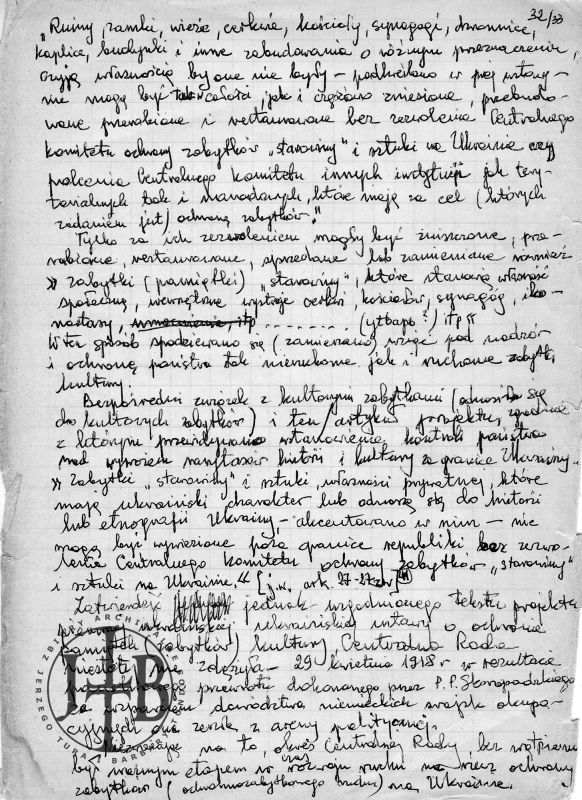 32/33
„Ruiny, zamki, wieże, cerkwie, kościoły, synagogi, dzwonnice,
kaplice, budynki i inne zabudowania o różnym przeznaczeniu,
czyją własnością by one nie były – podkreślano w tej ustawy –
nie mogą być tak w całości, jak i częściowo zniesione, przebudo-
wane przerabiane i restaurowane bez zezwolenia Centralnego
komitetu ochrony zabytków „starowiny" i sztuki na Ukrainie czy
polecenia Centralnego komitetu innych instytucji jak tery-
torialnych tak i narodowych, które mają za cel (których
zadaniem jest) ochronę zabytków."
Tylko za ich zezwoleniem mogły być zniszczone, prze-
rabiane, restaurowane, sprzedane lub zamienione również
» zabytki (pamiątki) „starowiny", które stanowią własność
społeczną, wewnętrzne wystroje cerkwi, kościołów, synagóg, iko-
nostasy, ........ (утварь?) itp «
W ten sposób spodziewano się (zamierzano) wziąć pod nadzór
i ochronę państwa tak nieruchome jak i ruchome zabytki
kultury.
Bezpośredni związek z kultowymi zabytkami (odnosiło się
do kultowych zabytków) i ten artykuł projektu, zgodnie
z którym przewidywano ustanowienie kontroli państwa
nad wywozem narodowej historii i kultury za granicę Ukrainy.
» Zabytki „starowiny" i sztuki, własności prywatnej, które
mają ukraiński charakter lub odnoszą się do historii
lub etnografii Ukrainy, – akcentowano w nim – nie
mogą być wywiezione poza granice republiki bez zezwo-
lenia Centralnego komitetu ochrony zabytków „starowiny"
i sztuki na Ukrainie." [j.w. ark. 27-27zw]
Zatwierdzić jednak uzgodnionego tekstu projektu
ukraińskiej ustawy o ochronie
zabytków) kultury, Centralna Rada
niestety nie zdążyła – 29 kwietnia 1918 r w rezultacie
przewrotu dokonanego przez P.P. Skoropadskiego
za wsparciem dowództwa niemieckich wojsk okupa-
cyjnych ona zeszła z areny politycznej.
na to, okres Centralnej Rady, bez wątpienia
był ważnym etapem w rozwoju ruchu na rzecz ochrony
zabytków ( ruchu) na Ukrainie.
ZBIORY ARCHIWALNE
JERZEGO TURA
BARBARY
JHTB